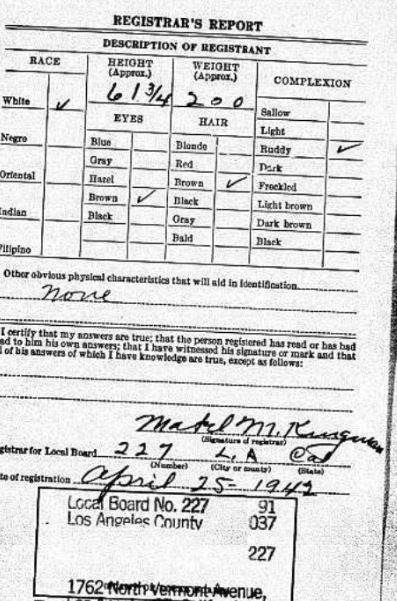 REGISTRAR'S REPORT
DESCRIPTION OF REGISTRANT
RACE HEIGHT (Approx.) WEIGHT (Approx.) COMPLEXION
6 1 3/4 200
White ✓ EYES HAIR Sallow
Light
Negro Blue Blonde Ruddy ✓
Gray Red Dark
Oriental Hazel Brown ✓ Freckled
Brown ✓ Black Light brown
Indian Black Gray Dark brown
Bald Black
Filipino
Other obvious physical characteristics that will aid in identification
None
I certify that my answers are true; that the person registered has read or has had
ad to him his own answers; that I have witnessed his signature or mark and that
l of his answers of which I have knowledge are true, except as follows:
Mabel M.
(Signature of registrar)
gistrar for Local Board 227 L.A Cal
(Number) (City or county) (State)
te of registration April 25- 1942
Local Board No. 227 91
Los Angeles County 037
227
1762 North Vermont Avenue,